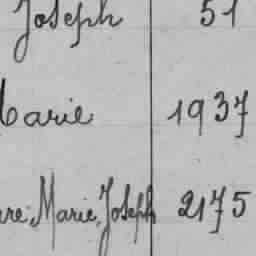 Joseph 51
Marie 1937
Marie, Joseph 2175